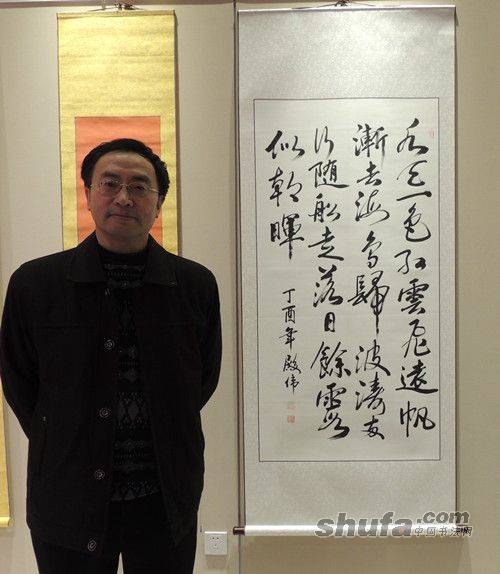 水天一色红雲飛遠帆
漸去海鳥歸波濤友
行随船走落日餘霞
似朝暉
丁酉年殿伟
shufa.com
中国书法网